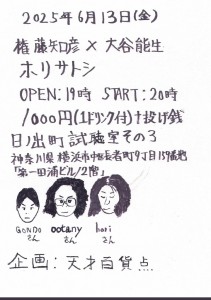 2025年6月13日(金)
権藤知彦×大谷能生
ホリサトシ
OPEN:19時 START:20時
1000円(1ドリンク付)+投げ銭
日ノ出町試聴室その3
神奈川県横浜市中区長者町9丁目159番地
「第一田浦ビル/2階」
GONDO さん
ootany さん
hori さん
企画:天才百貨点